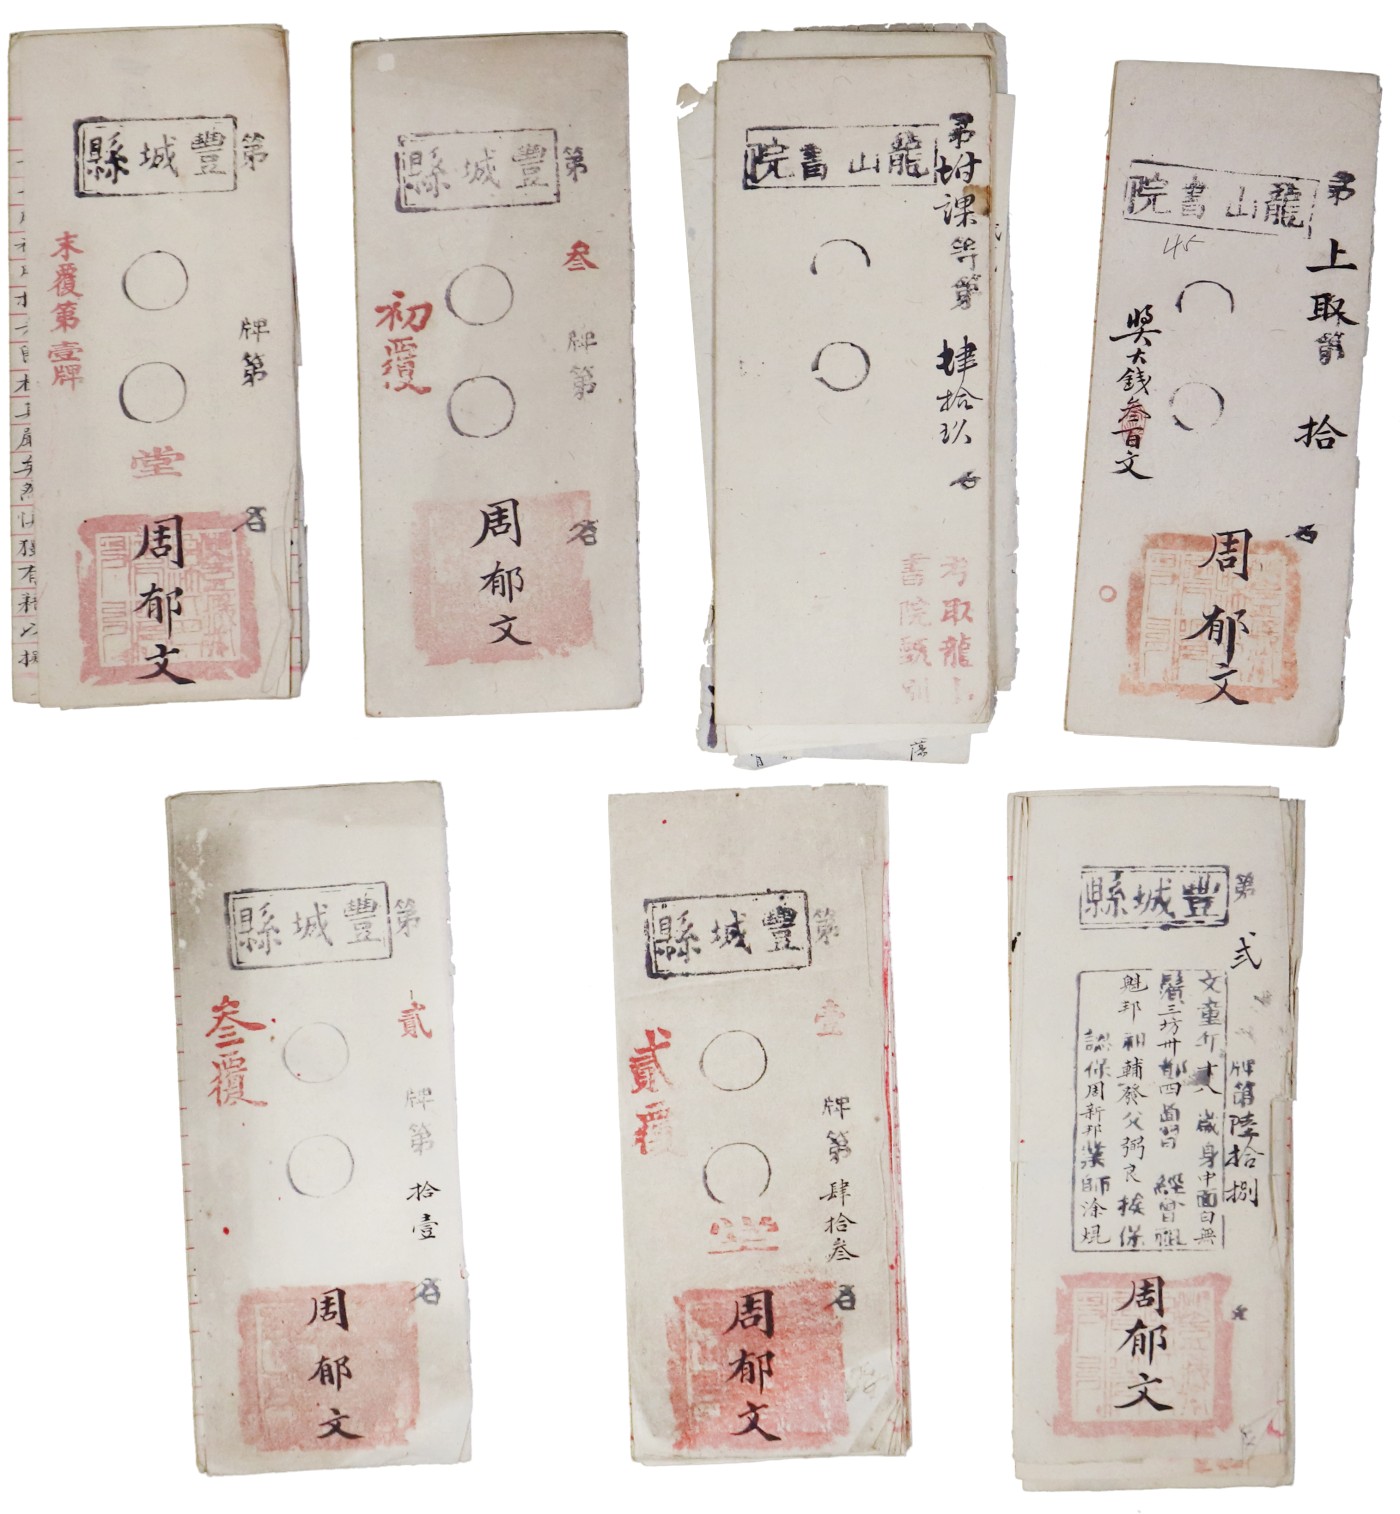 豐城縣
第
牌第
名
末覆第壹牌
堂
周郁文
豐城縣
第
叁
牌第
名
初覆
周郁文
龍山書院
第附課等第
肆拾玖
名
考取龍山
書院甄別
龍山書院
第
上取第
拾
名
45
獎大錢叁百文
周郁文
豐城縣
第
貳
牌第
拾壹
名
叁覆
周郁文
豐城縣
第
壹
牌第
肆拾叁
名
貳覆
堂
周郁文
豐城縣
第
弍
牌第陸拾捌
名
文童年十八歲身中面白無
鬚三坊卅都四啚習 經曾祖
魁邦祖輔發父弼良挨保
認保周新邦業師涂焜
周郁文